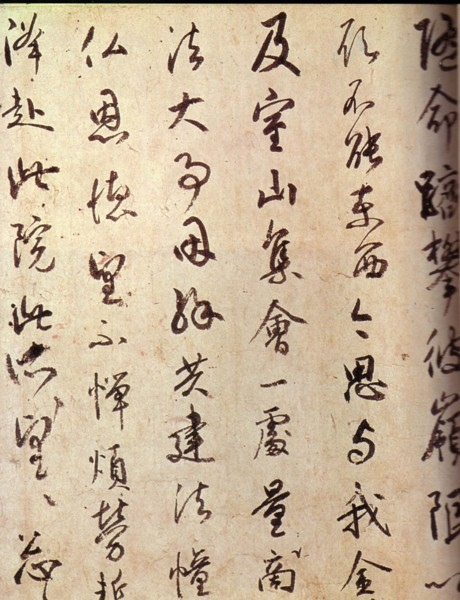 随命躋攀彼嶺限以
願不能東西今思与我金
及室山集會一處量商
法大事因縁共建法幢
仏恩徳望不憚煩勞蹔
降赴此院此所々望々忩